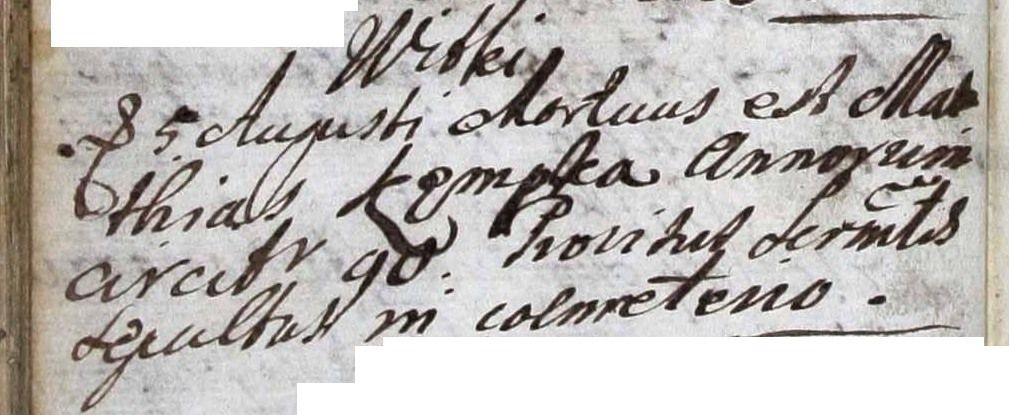 Witki
5 Augusti Mortuus est Mat
thias Kempka Annorum
circitr 90. Provisus Scrmtis
Sepultus in coemeterio.